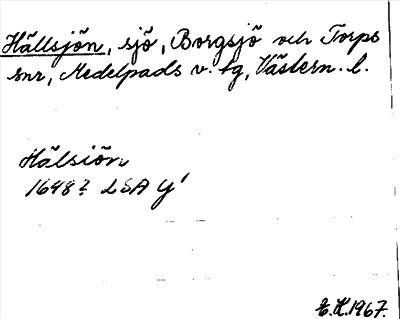 Hällsjön, sjö, Borgsjö och Torps
snr, Medelpads v. tg, Västern. l.
Hälsiön
1648? LSA Y¹
E.H. 1967.